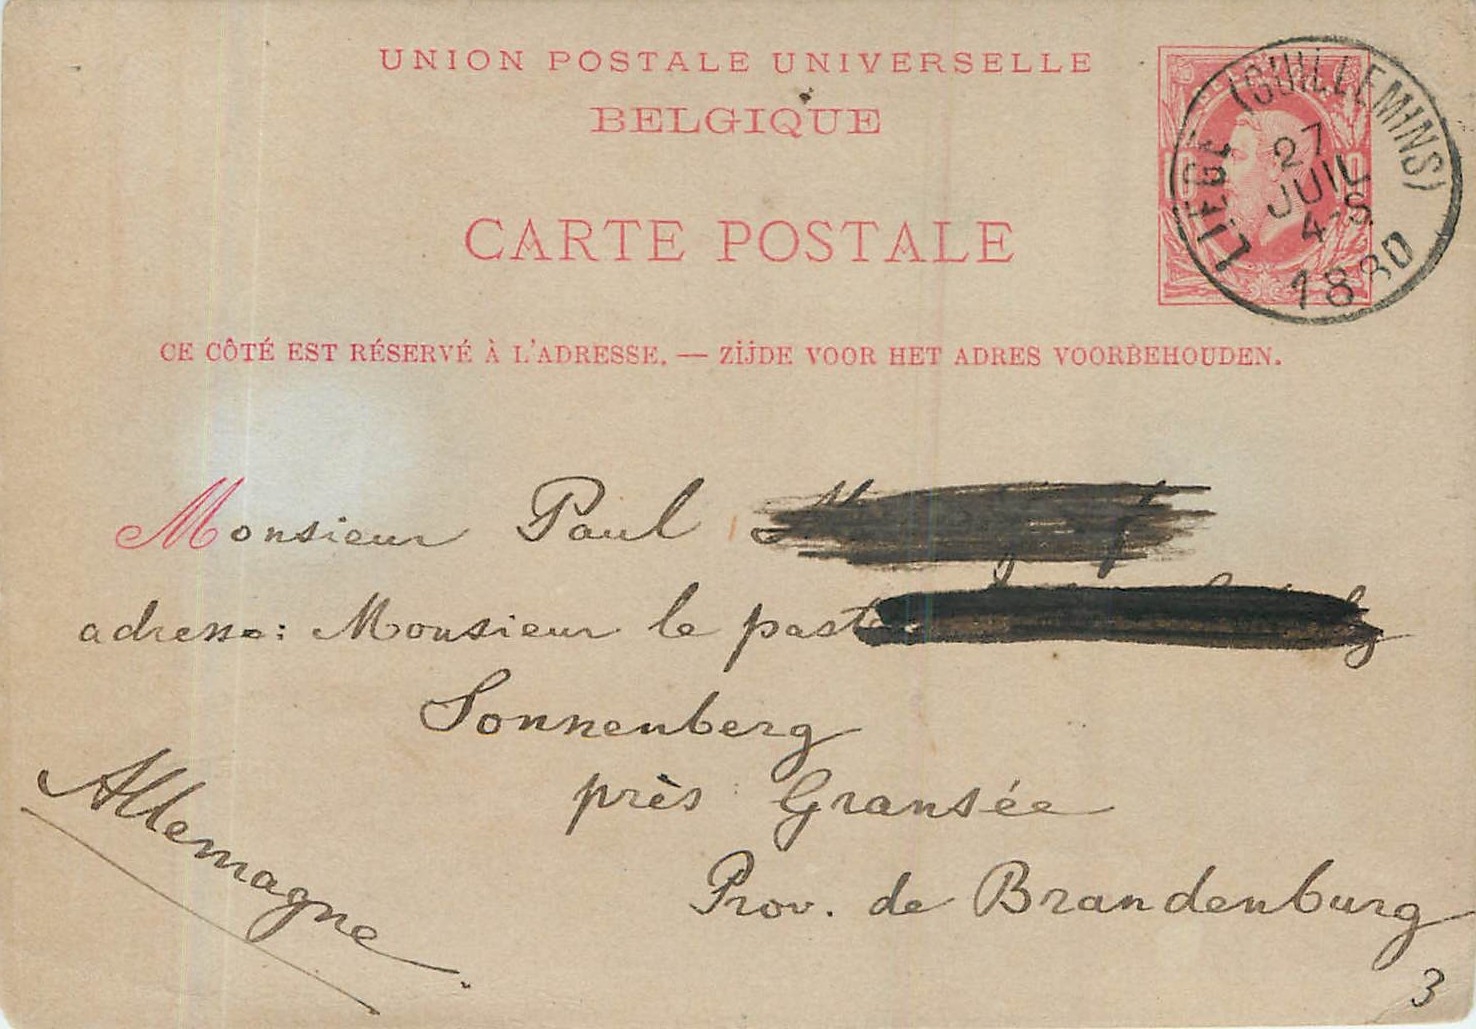 UNION POSTALE UNIVERSELLE
BELGIQUE
CARTE POSTALE
LIEGE (GUILLEMINS)
27
JUIL
4-S
1880
10
CE CÔTÉ EST RÉSERVÉ À L'ADRESSE. — ZIJDE VOOR HET ADRES VOORBEHOUDEN.
Monsieur Paul
adresse: Monsieur le past
Sonnenberg
près Gransée
Prov. de Brandenburg
Allemagne.
3